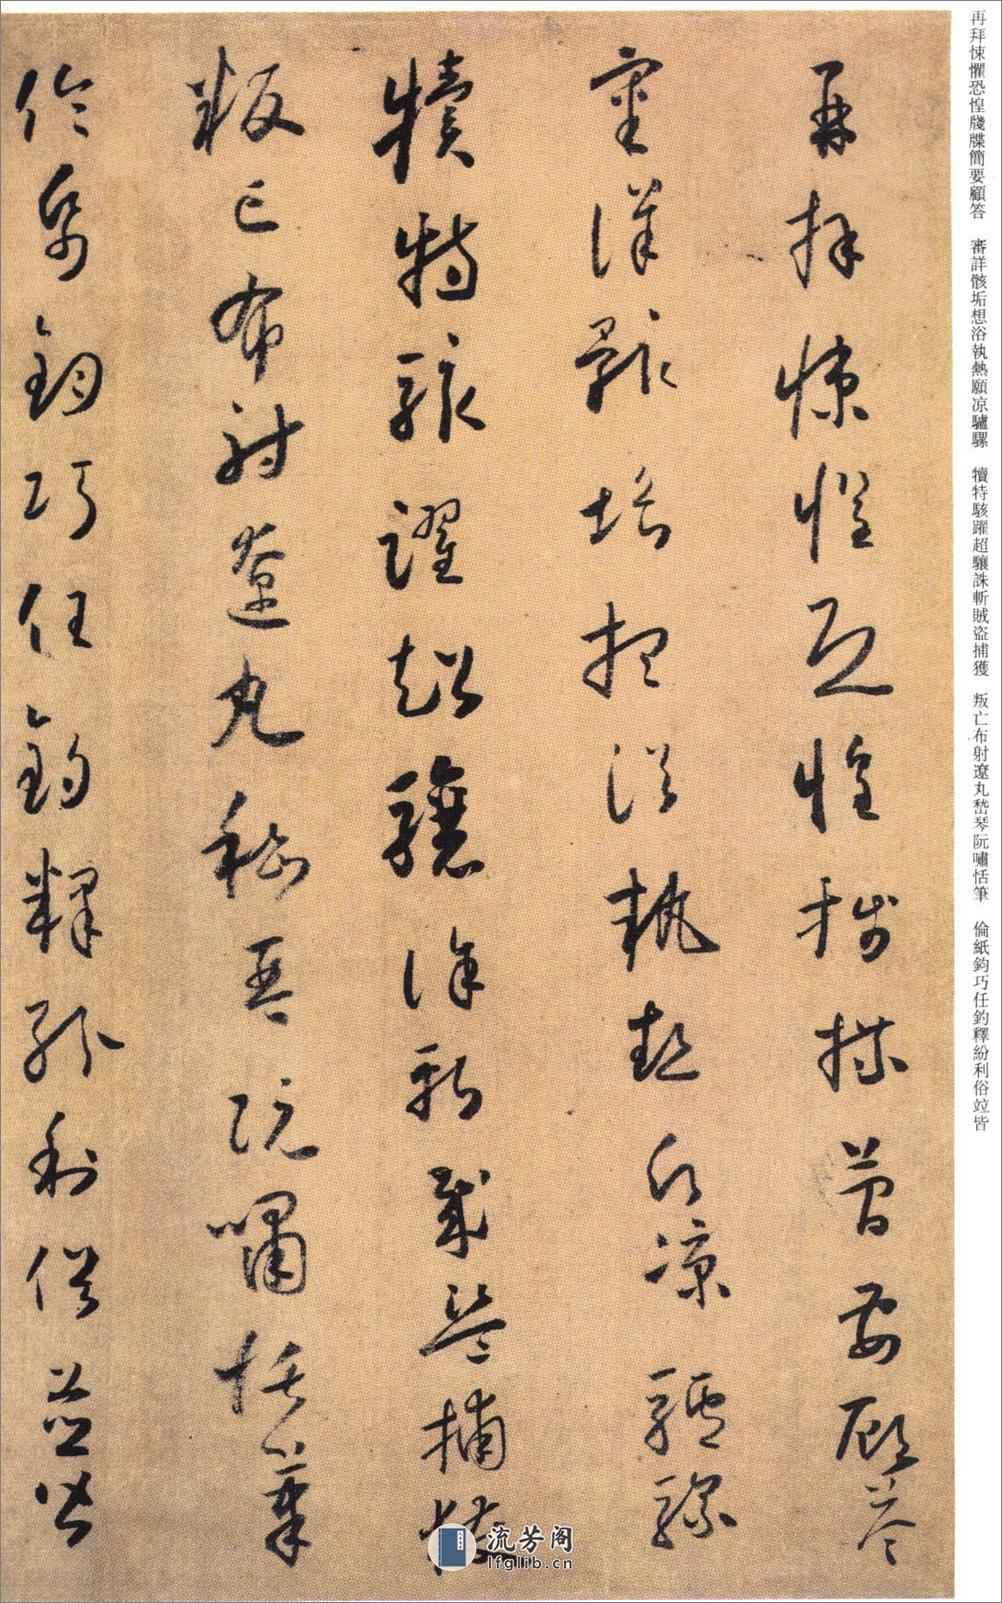 再拜悚懼恐惶牋牒簡要顧答 審詳骸垢想浴執熱願凉驢騾 犢特駭躍超驤誅斬賊盗捕獲 叛亡布射遼丸嵇琴阮嘯恬筆 倫紙鈞巧任釣釋紛利俗竝皆
再拜悚懼恐惶牋牒簡要顧答
審詳骸垢想浴執熱願凉驢騾
犢特駭躍超驤誅斬賊盗捕獲
叛亡布射遼丸嵇琴阮嘯恬筆
倫紙鈞巧任釣釋紛利俗竝皆
流芳阁
lfglib.cn